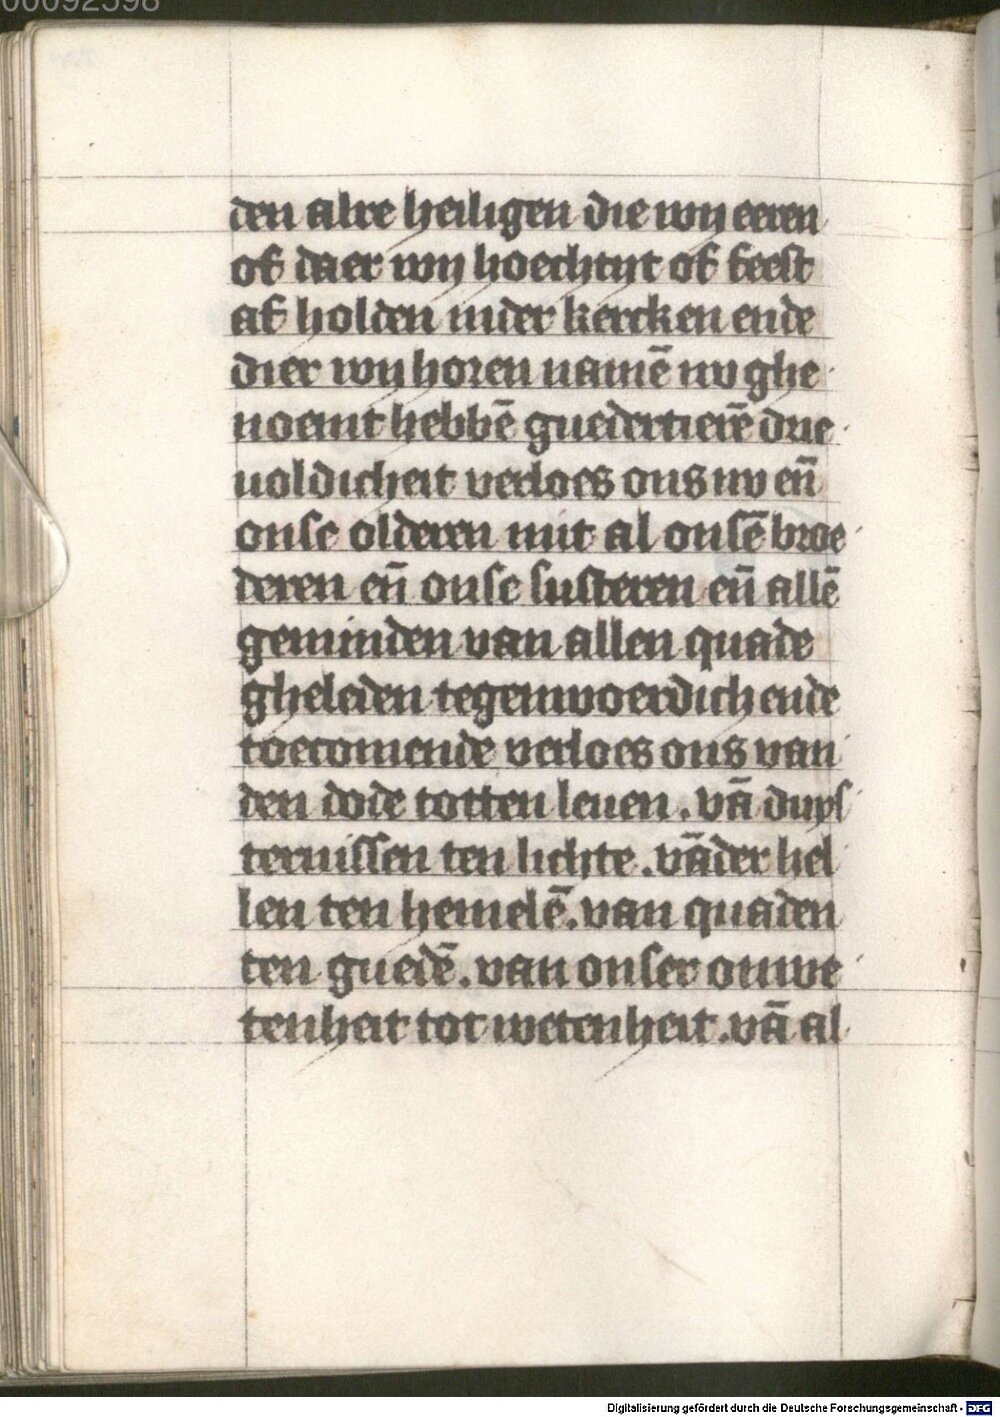 00092598
den alre heiligen die wy eeren
of daer wy hoechtyt of feest
af holden inder kercken ende
dier wy horen namē nv ghe
noemt hebbē guedertierē drie
uoldicheit verloes ons nv eñ
onse olderen mit al onsē broe
deren eñ onse susteren eñ allē
geminden van allen quade
gheleden tegenwoerdich ende
toecomende verloes ons van
den dode totten leuen. vā duys
ternissen ten lichte. vāder hel
len ten hemelē. van quaden
ten guedē. van onser onwe
tenheit tot wetenheit. vā al
Digitalisierung gefördert durch die Deutsche Forschungsgemeinschaft - DFG